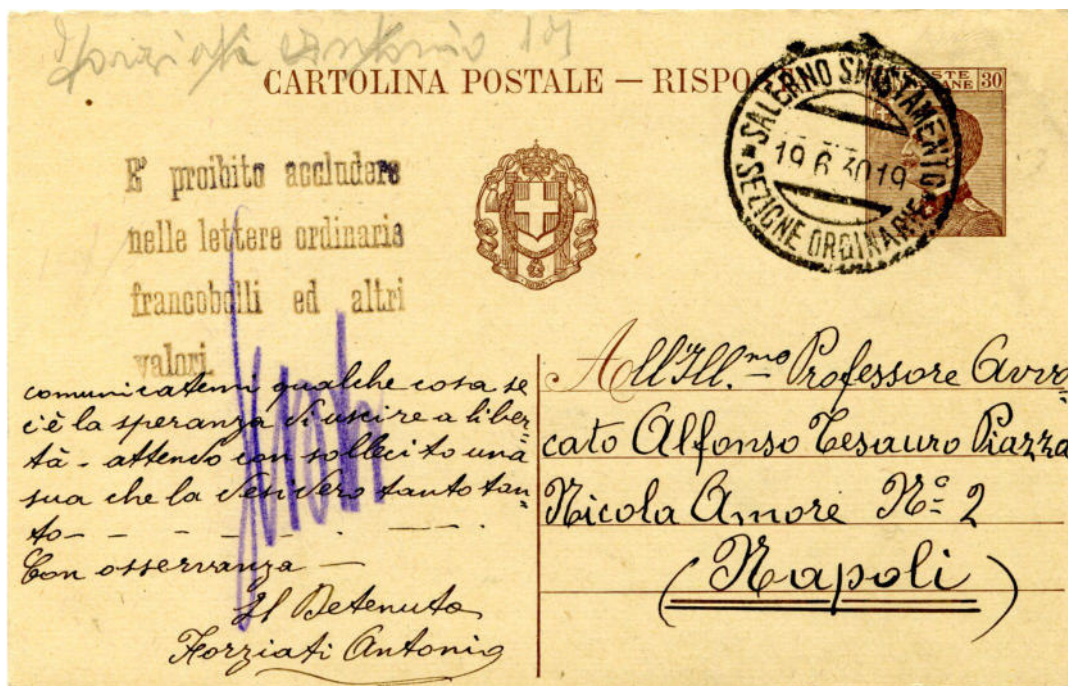 Antonio
CARTOLINA POSTALE — RISPO
STE
ANE 30
SALERNO SMISTAMENTO
19.6.30 19
SEZIONE ORDINARIE
E' proibito accludere
nelle lettere ordinarie
francobolli ed altri
valori.
comunicatemi qualche cosa se
c'è la speranza di uscire a liber=
tà - attendo con sollecito una
sua che la desidero tanto tan=
to - - - - - - -
Con osservanza -
Il Detenuto
Forziati Antonio
All'Ill.mo Professore Avvo=
cato Alfonso Tesauro Piazza
Nicola Amore No= 2
(Napoli)